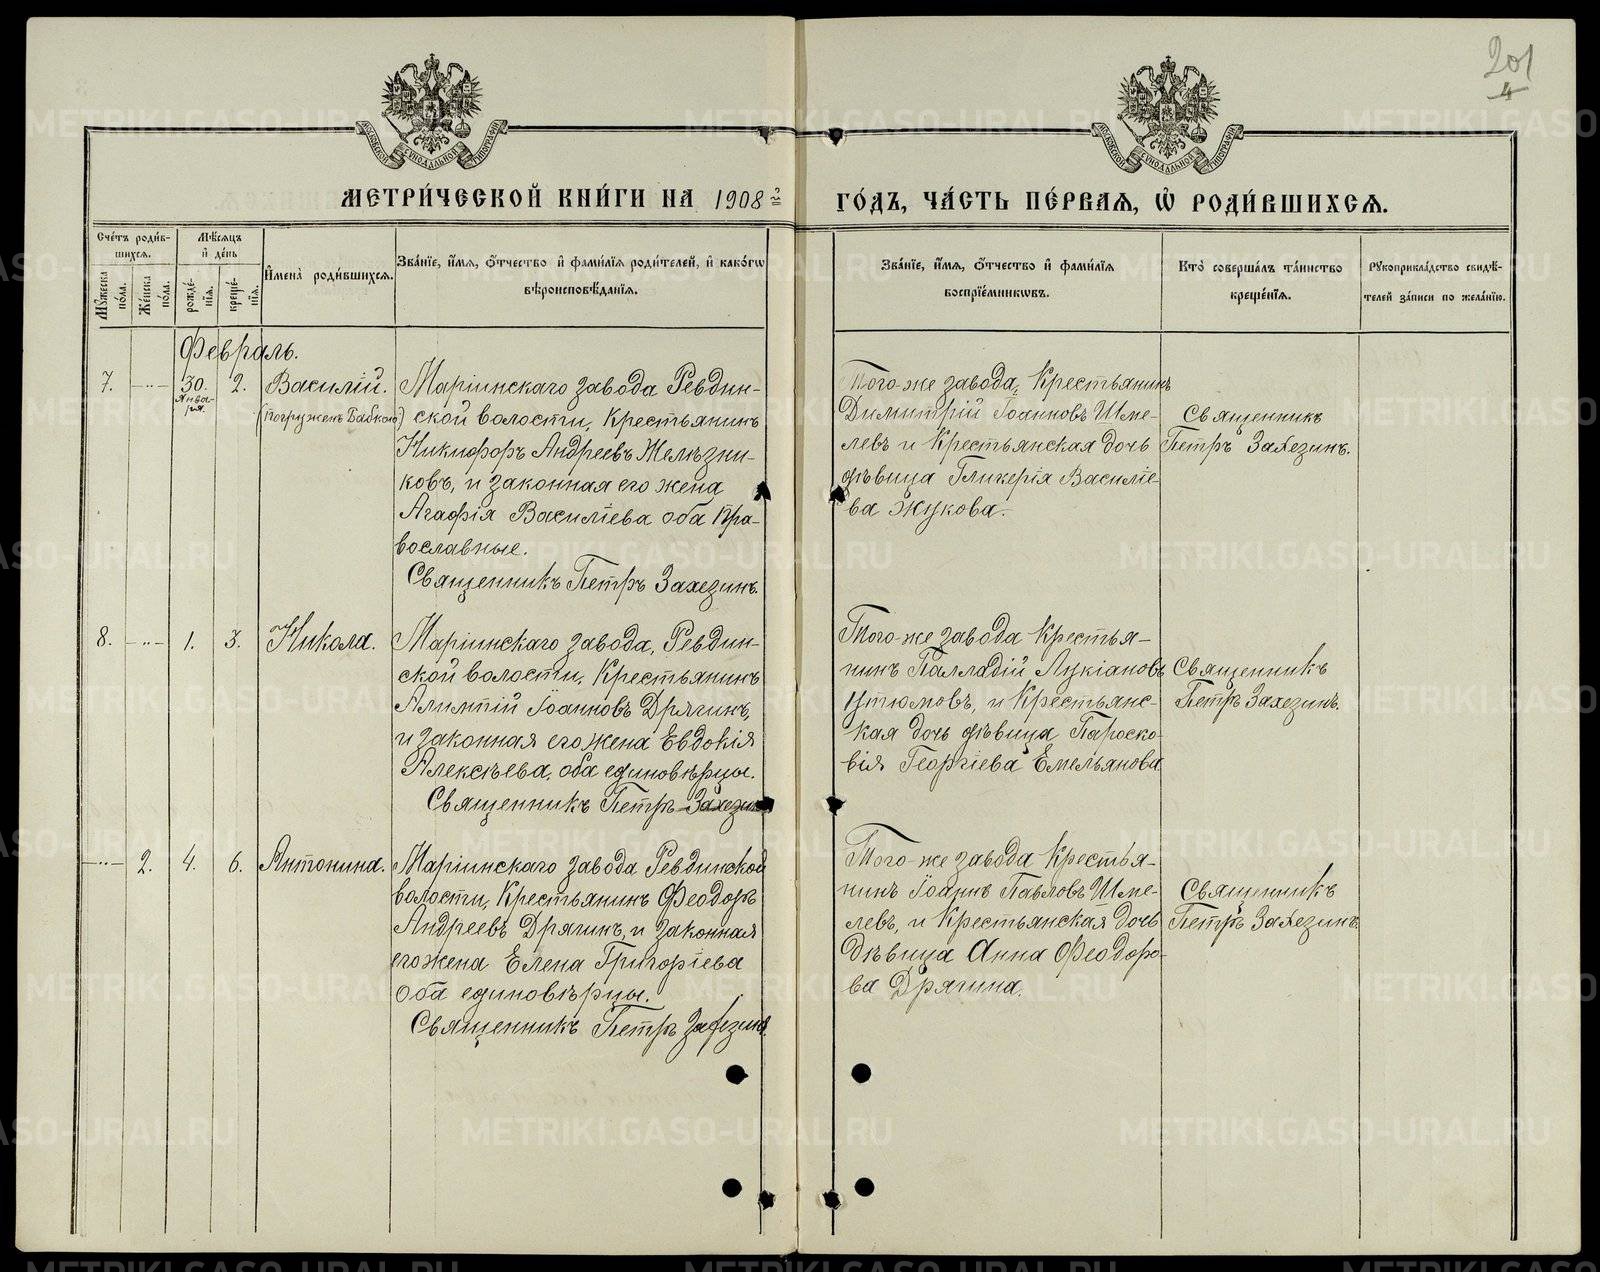 201
4
МОСКОВСКОЙ СѴНОДАЛЬНОЙ ТИПОГРАФІИ
МОСКОВСКОЙ СѴНОДАЛЬНОЙ ТИПОГРАФІИ
МЕТРИ́ЧЕСКОЙ КНИ́ГИ НА 1908 г.
ГО́ДЪ, ЧА́СТЬ ПЕ́РВАѦ, Ѡ҆ РОДИ́ВШИХСѦ.
Сче́тъ роди́в-
шихсѧ.
Мꙋ́жеска по́ла.
Же́нска по́ла.
Мѣ́сѧцъ
и҆ де́нь
рожде́-
нїѧ.
креще́-
нїѧ.
И҆мена̀ роди́вшихсѧ.
Зва́нїе, и҆́мѧ, ѻ҆́тчество и҆ фами́лїѧ роди́телей, и҆ како́гѡ
вѣроисповѣ́данїѧ.
Зва́нїе, и҆́мѧ, ѻ҆́тчество и҆ фами́лїѧ
воспрїе́мникѡвъ.
Кто̀ соверша́лъ та́инство
креще́нїѧ.
Рꙋкоприкла́дство свидѣ́-
телей за́писи по жела́нїю.
Февраль.
7. -"- 30. Янва-
ря. 2. Василій.
(погруженъ бабкою)
Маріинскаго завода Ревдин-
ской волости, Крестьянинъ
Никифоръ Андреевъ Желѣзни-
ковъ, и законная его жена
Агафія Василіева оба пра-
вославные.
Священникъ Петръ Захезинъ.
Того-же завода, Крестьянинъ
Димитрій Іоанновъ Шме-
левъ и Крестьянская дочь
дѣвица Гликерія Василіе-
ва Жукова.
Священникъ
Петръ Захезинъ.
8. -"- 1. 3. Никола.
Маріинскаго завода, Ревдин-
ской волости, Крестьянинъ
Алимпій Іоанновъ Дрягинъ,
и законная его жена Евдокія
Алексѣева, оба единовѣрцы.
Священникъ Петръ Захезинъ
Того-же завода Крестья-
нинъ Палладій Лукіановъ
Утюмовъ, и Крестьянс-
кая дочь дѣвица Пароско-
вія Георгіева Емельянова
Священникъ
Петръ Захезинъ.
-"- 2. 4. 6. Антонина.
Маріинскаго завода Ревдинской
волости, Крестьянинъ Феодоръ
Андреевъ Дрягинъ, и законная
его жена Елена Григоріева
Оба единовѣрцы.
Священникъ Петръ Захезинъ.
Того-же завода Крестья-
нинъ Іоаннъ Павловъ Шме-
левъ, и Крестьянская дочь
Дѣвица Анна Феодоро-
ва Дрягина.
Священникъ
Петръ Захезинъ.
METRIKI.GASO-URAL.RU